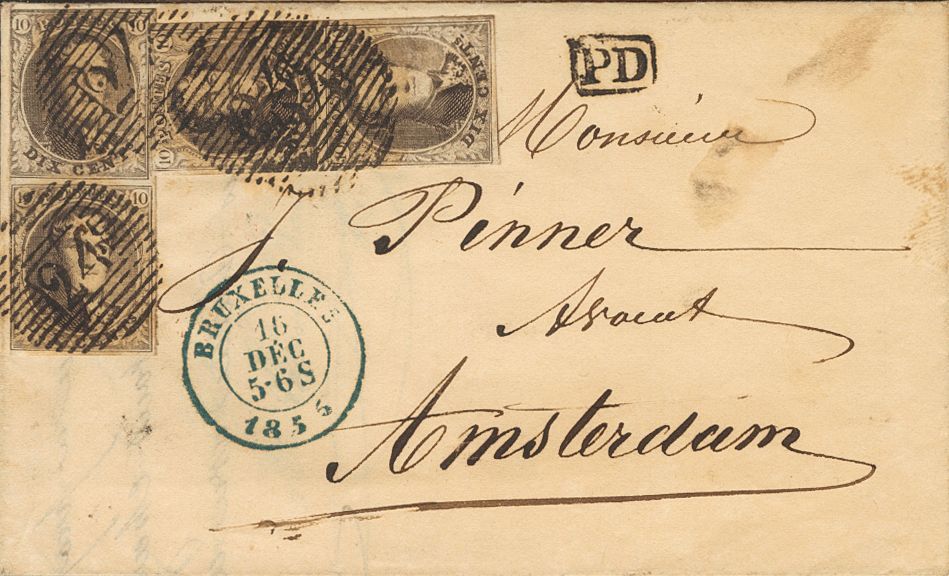 10 10
DIX CENT
10
DIX C
ENTS
10
24
PD
Monsieur
J. Pinner
Avocat
Amsterdam
BRUXELLES
16
DÉC
5-6S
1855